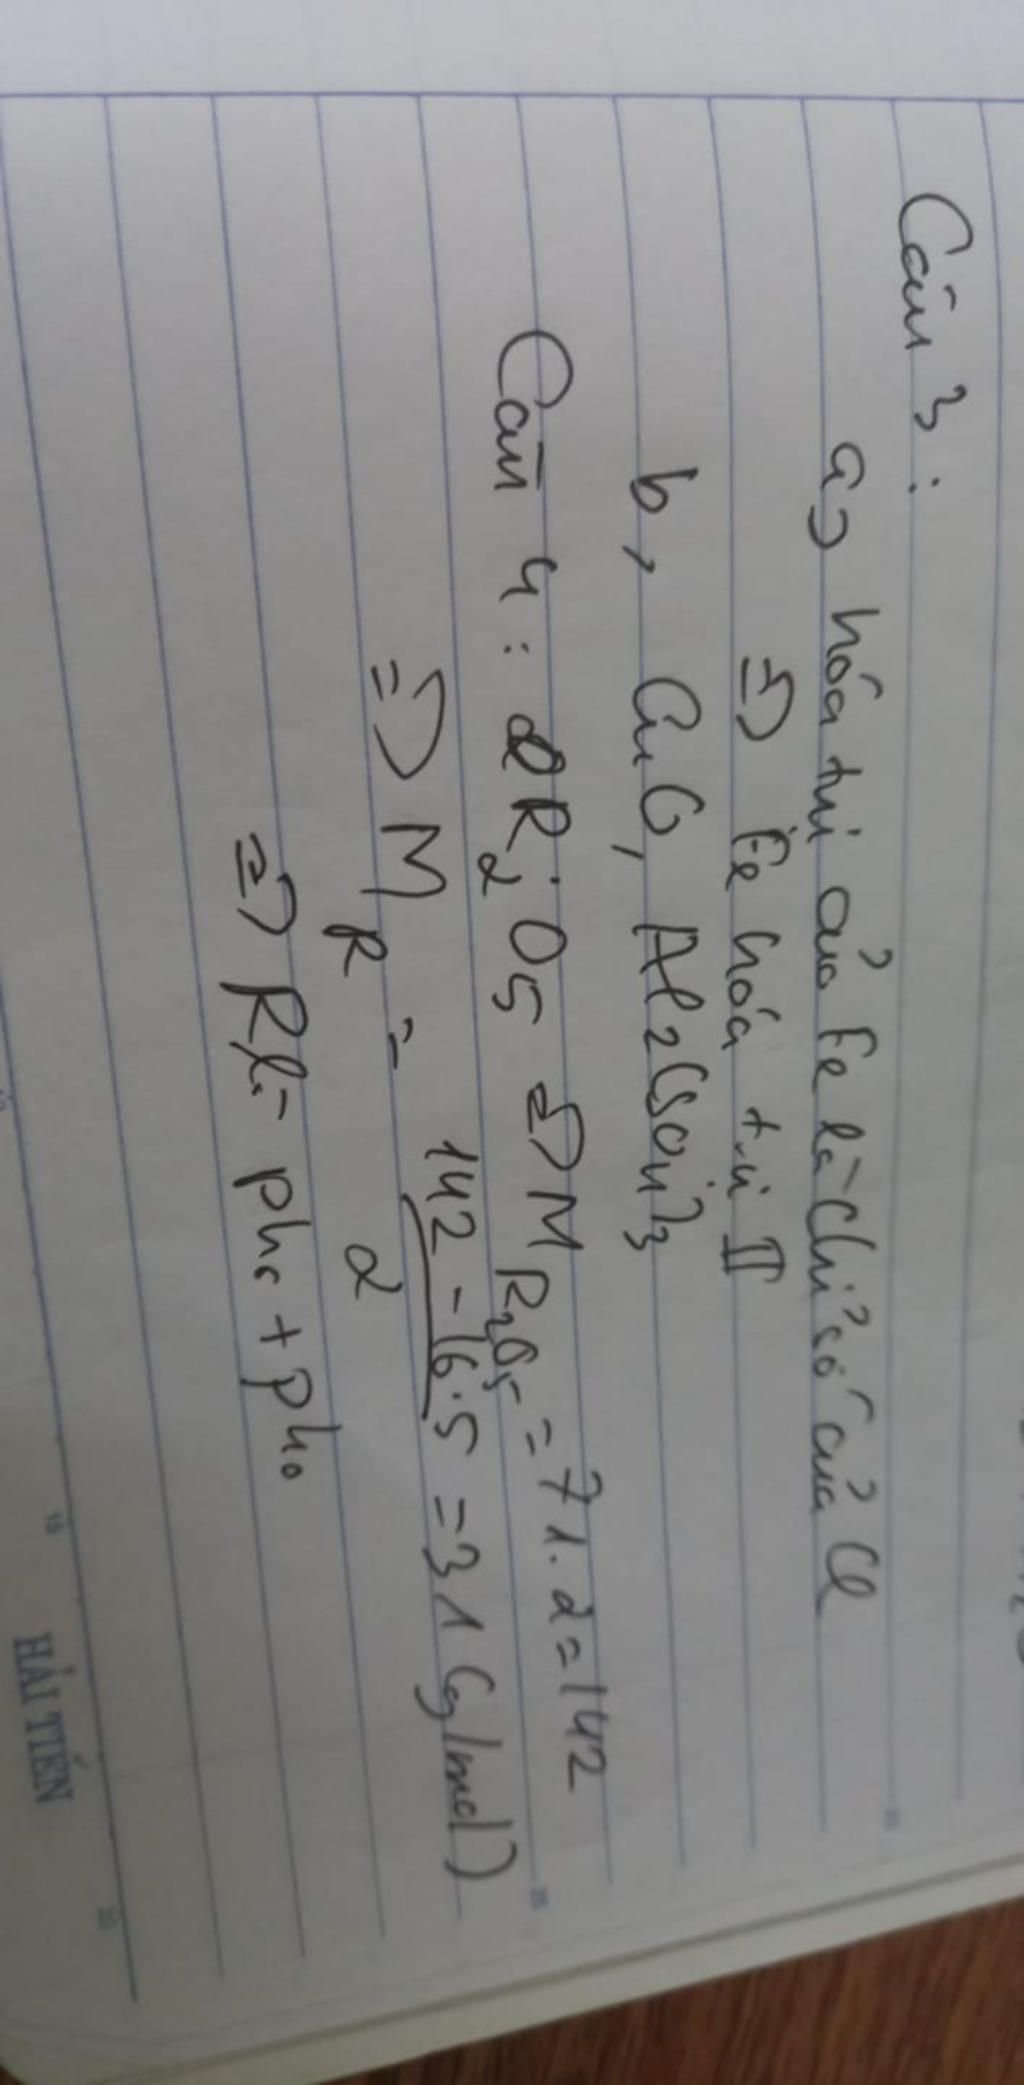 Câu 3 :
a, hóa trị của Fe là chỉ số của Cl
=> Fe hóa trị II
b, CuO, Al2(SO4)3
Câu 4 : R2O5 => M R2O5 = 71.2=142
=> M R = 142 - 16.5 / 2 = 31 (g/mol)
=> R là phot pho
HẢI TIẾN